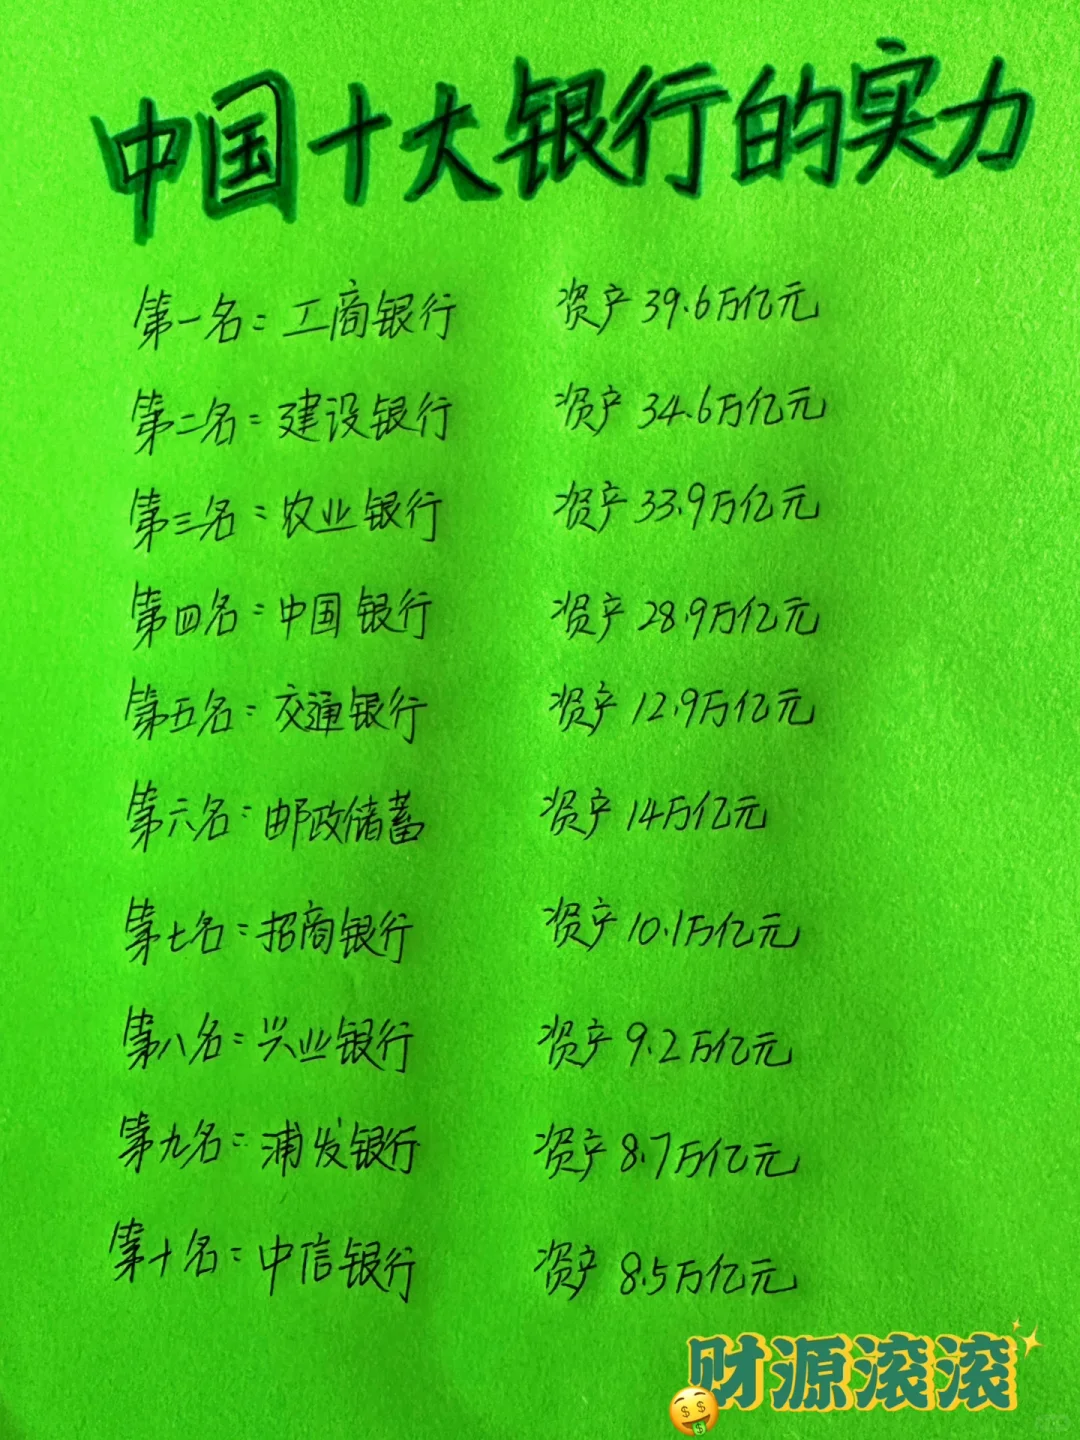 中国十大银行的实力
第一名：工商银行 资产39.6万亿元
第二名：建设银行 资产34.6万亿元
第三名：农业银行 资产33.9万亿元
第四名：中国银行 资产28.9万亿元
第五名：交通银行 资产12.9万亿元
第六名：邮政储蓄 资产14万亿元
第七名：招商银行 资产10.1万亿元
第八名：兴业银行 资产9.2万亿元
第九名：浦发银行 资产8.7万亿元
第十名：中信银行 资产8.5万亿元
财源滚滚